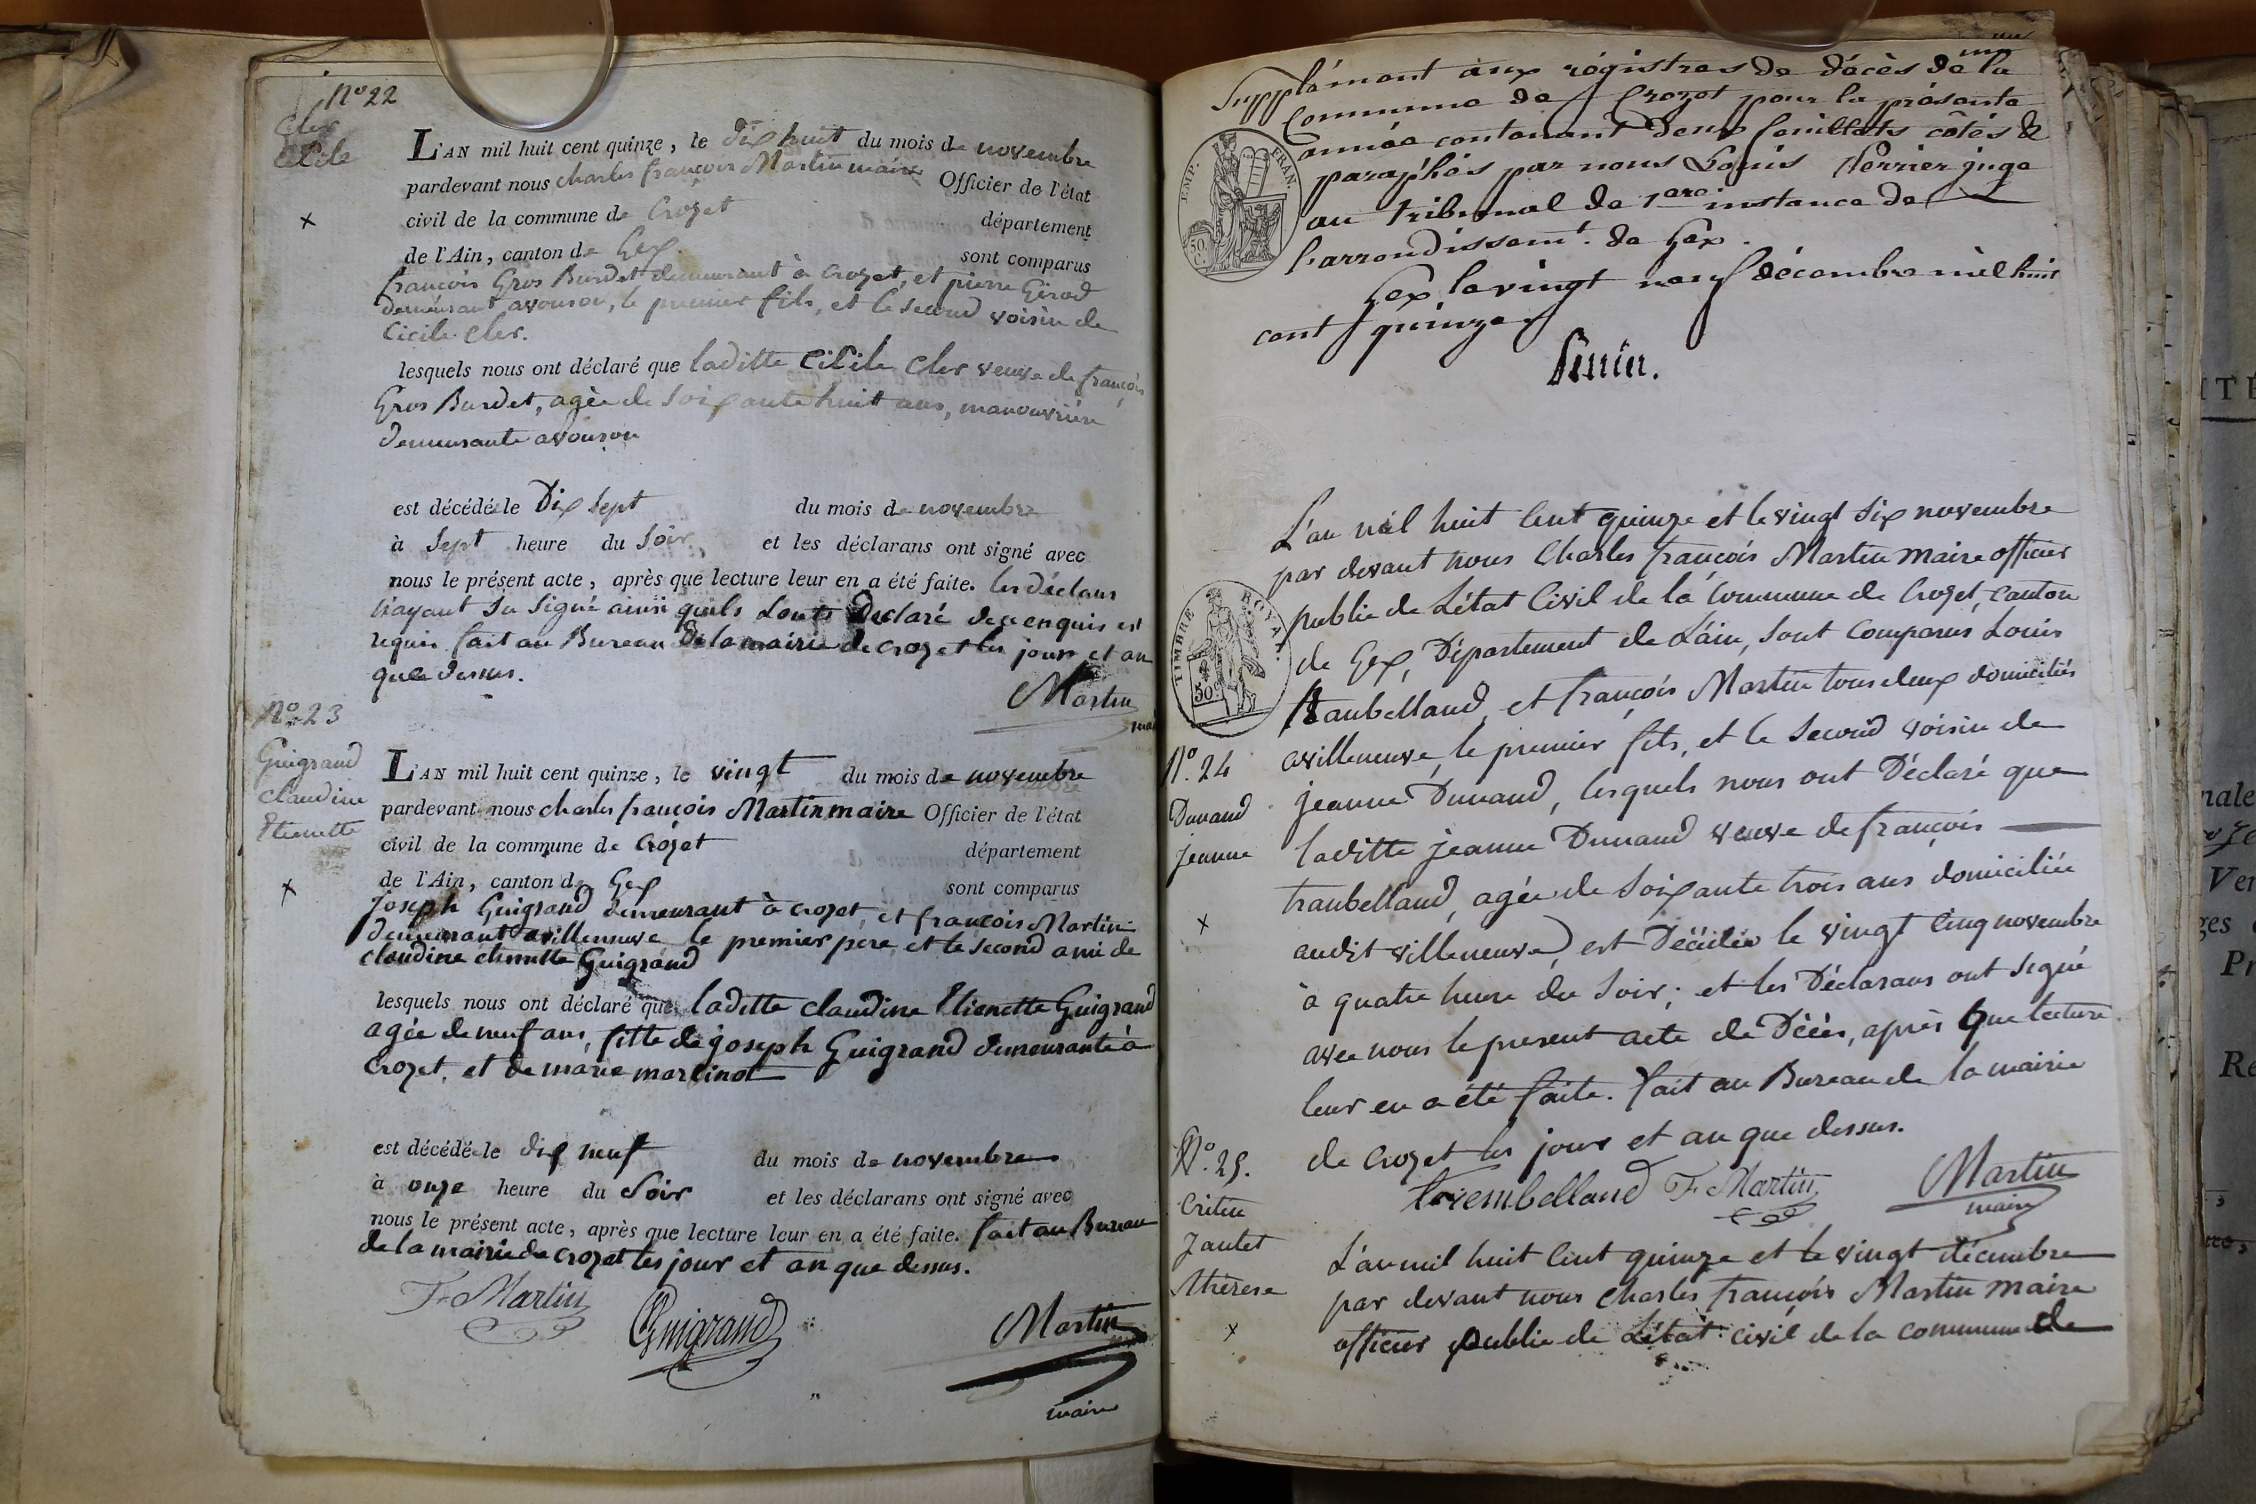 N° 22
Cler
Cicile
L'AN mil huit cent quinze, le dix huit du mois de novembre
pardevant nous charles françois Martin maire Officier de l'état
civil de la commune de Crozet département
de l'Ain, canton de Gex sont comparus
françois Gros Burdet demeurant à crozet, et pierre Girod
demeurant avouson, le premier fils, et le second voisin de
Cicile Cler.
lesquels nous ont déclaré que laditte Cicile Cler veuve de françois
Gros Burdet, agée de soixante huit ans, manouvrière
demeurante avouson
est décédée le Dix sept du mois de novembre
à sept heure du soir, et les déclarans ont signé avec
nous le présent acte, après que lecture leur en a été faite. les déclarans
n'ayant su signé ainsi quils lont déclaré de ce enquis et
requis fait au Bureau de la mairie de crozet les jour et an
que dessus.
Martin
mai
N° 23
Guigrand
claudine
Etienette
L'AN mil huit cent quinze, le vingt du mois de novembre
pardevant nous charles françois Martin maire Officier de l'état
civil de la commune de Crozet département
de l'Ain, canton de Gex sont comparus
joseph Guigrand demeurant à crozet, et françois Martin
demeurant avilleneuve le premier pere, et le second ami de
claudine etienette Guigrand
lesquels nous ont déclaré que laditte claudine Etienette Guigrand
agée de neuf ans, fille de joseph Guigrand demeurante à
Crozet, et de marie martinot
est décédée le dix neuf du mois de novembre
à onze heure du soir et les déclarans ont signé avec
nous le présent acte, après que lecture leur en a été faite. fait au Bureau
de la mairie de crozet les jour et an que dessus.
F. Martin Guigrand Martin
maire
Supplément aux régistres de décès de la
Commune de Crozet pour la présente
année contenant deux feuillets côtés &
paraphés par nous Louis Perrier juge
au tribunal de 1ere instance de
l'arrondissemt. de Gex.
Gex le vingt neuf décembre mil huit
cent quinze
Perrier.
EMP. FRAN.
50 C.
L'an mil huit cent quinze et le vingt six novembre
par devant nous Charles françois Martin maire officier
public de L'état Civil de la Commune de Crozet, canton
de Gex, Département de L'ain, sont comparus Louis
traubelland, et françois Martin tous deux domiciliés
avilleneuve, le premier fils, et le second voisin de
jeanne Dunand, lesquels nous ont Déclaré que
laditte jeanne Dunand veuve de françois
traubelland, agée de soixante trois ans domiciliée
audit villeneuve, est Décédée le vingt cinq novembre
à quatre heure du soir; et les Déclarans ont signé
avec nous le present acte de Décès, après que lecture
leur en a été faite. fait au Bureau de la mairie
de crozet les jour et an que dessus.
TIMBRE ROYAL
50c
N° 24
Dunand
jeanne
trembelland F. Martin Martin
maire
N° 25.
Critin
Jantet
thérese
L'an mil huit cent quinze et le vingt décembre
par devant nous charles françois Martin maire
officier public de L'état civil de la commune de